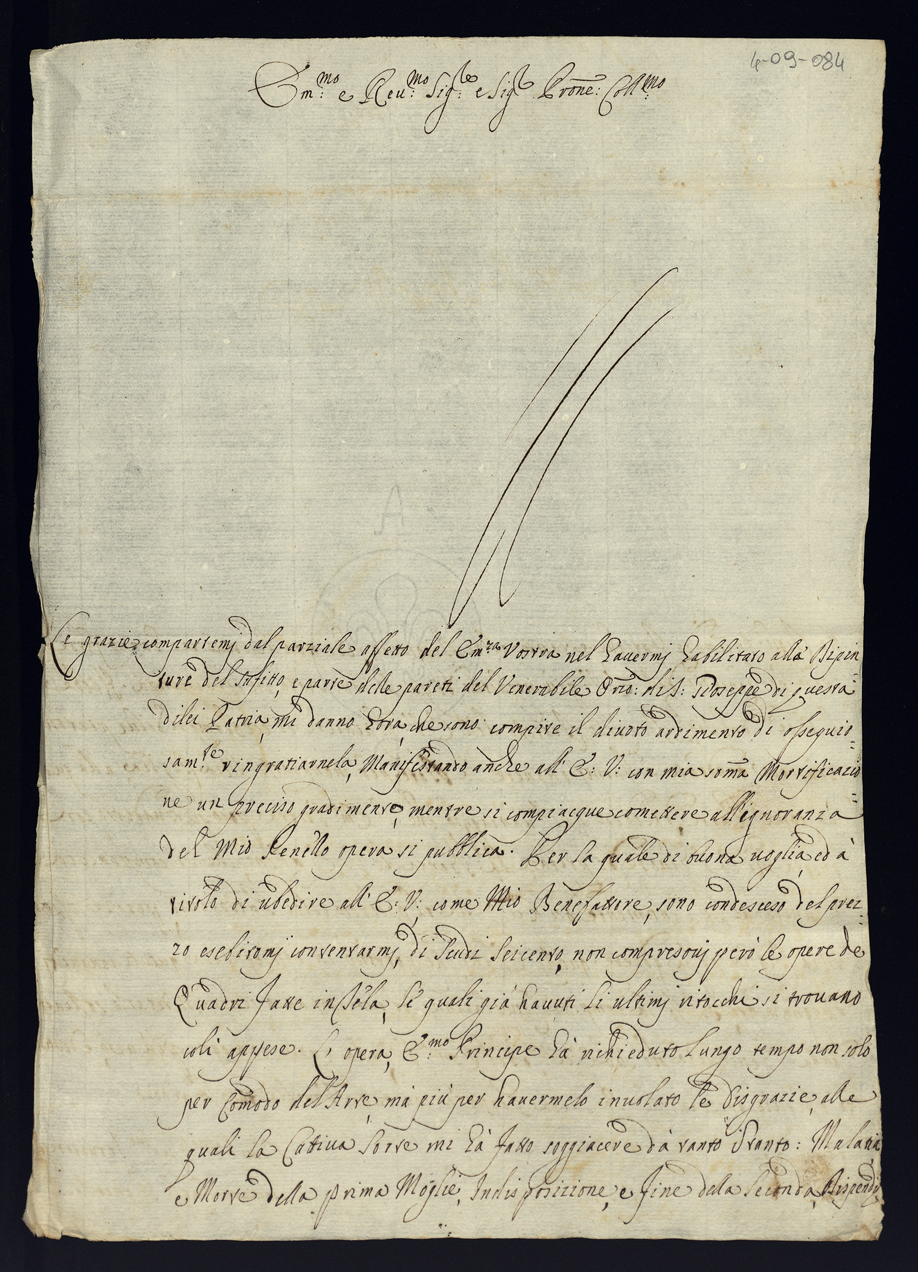 4-09-084
Em:mo e Reu:mo Sig:re e Sig:re Prone: Coll:mo
A
Le grazie compartemj dal parziale affetto del Em:za Vostra nel havermj habilitato alla Dipin=
ture del sofitto, e parte delle pareti del Venerabile Orio: di S: Gioseppe di questa
di lei Patria, mi danno hora, che sono compire il divoto ardimento di ossequio=
sam:te ringratiarnela, Manifestando anche all' E: V: con mia soma Mortificazio=
ne un preciso gradimento, mentre si compiacque comettere all'ignoranza
del Mio Penello opera si pubblica. Per la quale di buona voglia, ed à
titolo di ubedire all' E: V: come Mio Benefattore, sono condesceso del prez=
zo esebitomj contentarmj, di Scudi Seicento, non compresouj però le opere de
Quadri fatte in Tela, le quali già havuti li ultimj ritocchi si trovano
colà appese. L'opera, E:mo Principe hà richieduto Lungo tempo non solo
per Comodo del'Arte, mà più per havermelo involato le disgrazie, alle
quali la Cativa Sorte mi hà fatto soggiacere dà tanto In tanto: Malatia
e Morte della prima Moglie, Indisposizione, e fine della Seconda, Dispendi